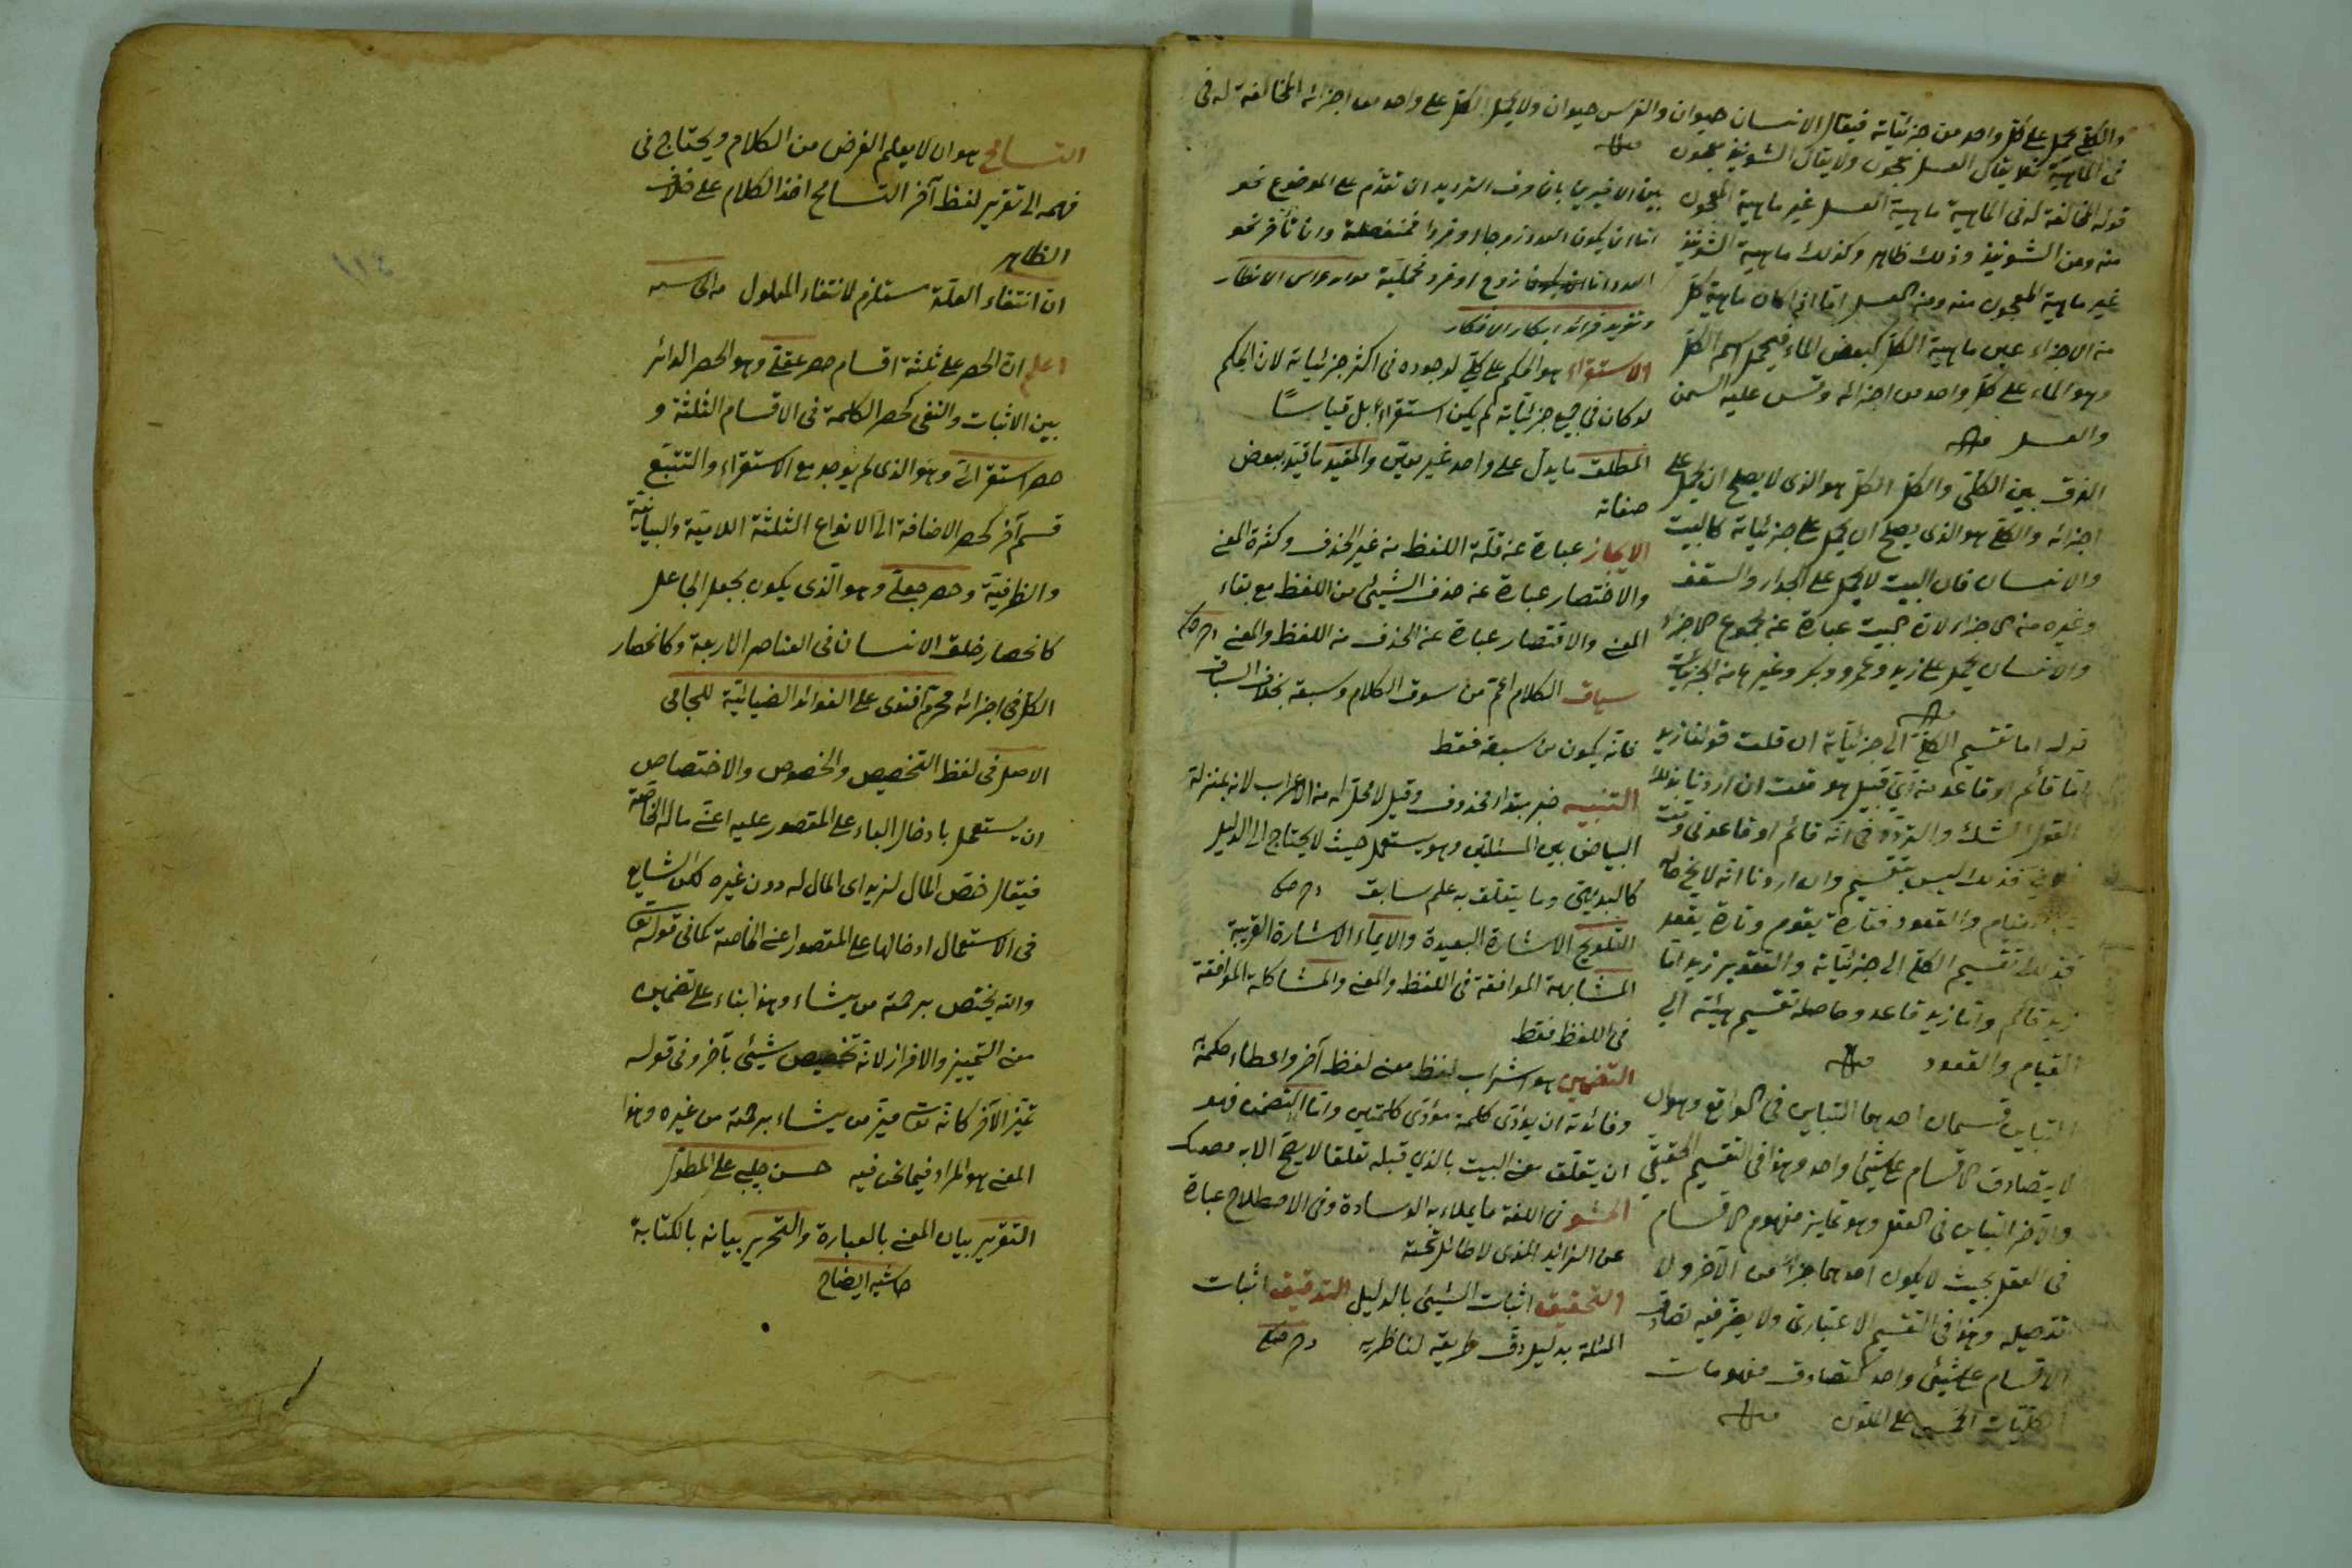 والكلي يحمل على كل واحد من جزئياته فيقال الانسان حيوان والفرس حيوان ولا يحمل الكل على واحد من اجزائه المخالفة له فى
فى الماهية فلا يقال العسل معجون ولا يقال الشونيز معجون
قوله المخالفة له فى الماهية ماهية العسل غير ماهية المعجون
منه ومن الشونيز وذلك ظاهر وكذلك ماهية الشونيز
غير ماهية المعجون منه ومن العسل اما اذا كان ماهية كل
من الاجزاء عين ماهية الكل كبعض الماء فيحمل اسم الكل
وهو الماء على كل واحد من اجزائه وقس عليه السمن
والعسل
الفرق بين الكلى والكل الكل هو الذى لا يصلح ان يحمل على
اجزائه والكلى هو الذى يصلح ان يحمل على جزئياته كالبيت
والانسان فان البيت لا يحمل على الجدار والسقف
وغيره من الاجزاء لان البيت عبارة عن مجموع الاجزاء
والانسان يحمل على زيد وعمرو وبكر وغيرها من الجزئيات
قوله اما تقسيم الكلى الى جزئياته ان قلت قولنا زيد
اما قائم او قاعد من اى قبيل هو قلت ان اردنا بذلك
القول الشك والتردد فى انه قائم او قاعد فى وقت
فذلك ليس بتقسيم وان اردنا انه لا يخ حاله
القيام والقعود فتارة يقوم وتارة يقعد
فذلك تقسيم الكلى الى جزئياته والتقدير زيد اما
زيد قائم واما زيد قاعد وحاصله تقسيم هيئته الى
القيام والقعود
التباين قسمان احدهما التباين فى الواقع وهو ان
لا يتصادق الاقسام على شيئ واحد وهذا فى التقسيم الحقيقى
والآخر التباين فى العقل وهو تمايز مفهوم الاقسام
فى العقل بحيث لا يكون احدهما جزأ من الآخر ولا
تفصيله وهذا فى التقسيم الاعتبارى ولا يضر فيه تصادق
الاقسام على شيئ واحد كتصادق مفهومات
الكليات الخمس على الملون
بين الاخيرين بان حرف الترديد ان تقدم على الموضوع نحو
اما ان يكون العدد زوجا او فردا فمنفصلة وان تأخر نحو
العدد اما زوج او فرد فحملية
الاستقراء هو الحكم على كلي لوجوده فى اكثر جزئياته لان الحكم
لو كان في جميع جزئياته لم يكن استقراء بل قياسا
المطلق ما يدل على واحد غير معين والمقيد ما قيد ببعض
صفاته
الايجاز عبارة عن قلة اللفظ من غير الحذف وكثرة المعنى
والاختصار عبارة عن حذف الشيئ من اللفظ مع بقاء
المعنى والاقتصار عبارة عن الحذف من اللفظ والمعنى
سياق الكلام اعم من سوق الكلام وسبقه بخلاف السباق
فانه يكون من سبقه فقط
التنبيه خبر مبتداء محذوف وقيل لا محل له من الاعراب لانه بمنزلة
البياض بين المسئلتين وهو يستعمل حيث لا يحتاج الى الدليل
كالبديهى وما يتعلق به علم سابق
التلويح الاشارة البعيدة والايماء الاشارة القريبة
المشابهة الموافقة فى اللفظ والمعنى والمشاكلة الموافقة
فى اللفظ فقط
التضمين هو اشراب لفظ معنى لفظ آخر واعطاء حكمه
وفائدته ان يؤدى كلمة مؤدى كلمتين واما التضمن فهو
ان يتعلق معنى البيت بالذي قبله تعلقا لا يصح الا به
الحشو فى اللغة ما يملاء به الوسادة وفى الاصطلاح عبارة
عن الزائد الذى لا طائل تحته
التحقيق اثبات الشيئ بالدليل التدقيق اثبات
المسئلة بدليل دق طريقه لناظريه
التسامح هو ان لا يعلم الغرض من الكلام ويحتاج فى
فهمه الى تقرير لفظ آخر التسامح اخذ الكلام على خلاف
الظاهر
ان انتفاء العلة مستلزم لانتفاء المعلول
اعلم ان الحصر على ثلثة اقسام حصر عقلي وهو الحصر الدائر
بين الاثبات والنفى كحصر الكلمة فى الاقسام الثلثة و
حصر استقرائي وهو الذى لم يوجد مع الاستقراء والتتبع
قسم آخر كحصر الاضافة الى الانواع الثلثة اللامية والبيانية
والظرفية وحصر جعلي وهو الذى يكون بجعل الجاعل
كانحصار خلق الانسان فى العناصر الاربعة وكانحصار
الكل فى اجزائه محرم افندى على الفوائد الضيائية للجامى
الاصل فى لفظ التخصيص والخصوص والاختصاص
ان يستعمل بادخال الباء على المقصور عليه اعنى ماله الخاصة
فيقال خص المال لزيد اى المال له دون غيره لكن الشايع
فى الاستعمال ادخالها على المقصور اعنى الخاصة كما فى قوله تعا
والله يختص برحمته من يشاء وهذا بناء على تضمين
معنى التمييز والافراز لانه تخصيص شيئ بآخر وفى قوله
تميز الآخر كانه تعا ميز من يشاء برحمته من غيره وهذا
المعنى هو المراد فيما نحن فيه حسن چلبى على المطول
التقرير بيان المعنى بالعبارة والتحرير بيانه بالكتابة
حاشيه ايضاح
١١٤